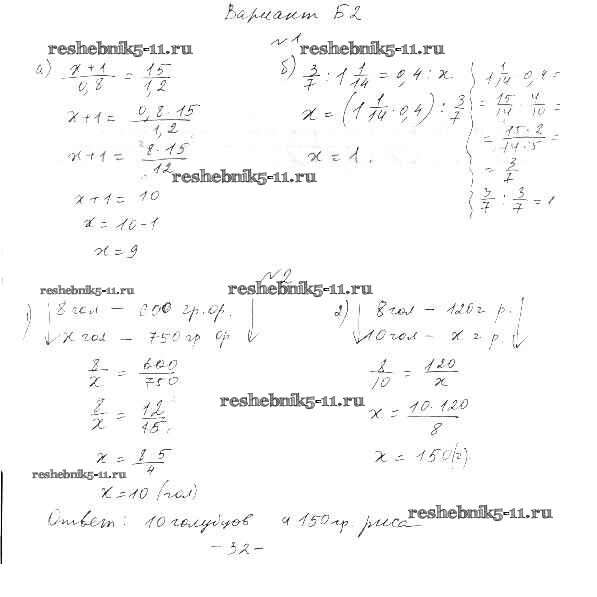 Вариант Б2
№1
reshebnik5-11.ru reshebnik5-11.ru
а) (x+1)/0,8 = 15/1,2
x+1 = (0,8·15)/1,2
x+1 = (8·15)/12
reshebnik5-11.ru
x+1 = 10
x = 10-1
x = 9
б) 3/7 : 1 1/14 = 0,4 : x
x = (1 1/14 · 0,4) : 3/7
x = 1.
1 1/14 · 0,4 =
= 15/14 · 4/10 =
= (15·2)/(14·5) =
= 3/7
3/7 : 3/7 = 1
№2
reshebnik5-11.ru reshebnik5-11.ru
1) 8 гол — 600 гр. ор.
x гол — 750 гр ор
8/x = 600/750
8/x = 12/15
x = (8·5)/4
reshebnik5-11.ru
x = 10 (гол)
2) 8 гол — 120 г р.
10 гол — x г р.
8/10 = 120/x
reshebnik5-11.ru
x = (10·120)/8
x = 150 (г)
Ответ: 10 голубцов и 150 гр. риса
reshebnik5-11.ru
-32-